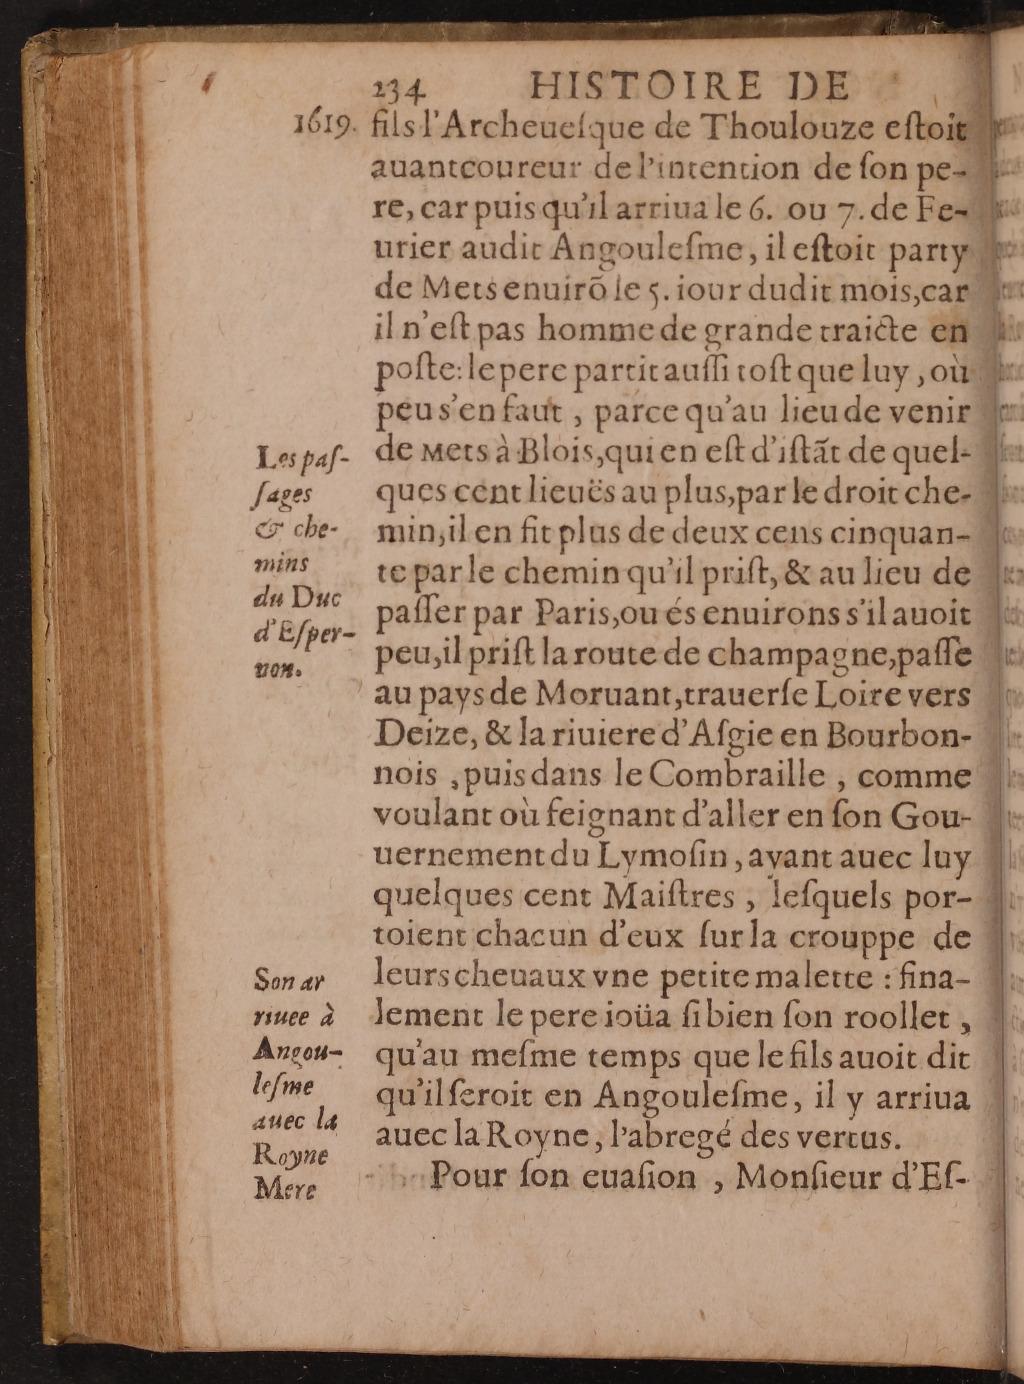 234 HISTOIRE DE
1619. fils l'Archeueſque de Thoulouze eſtoit
auantcoureur de l'intention de ſon pe-
re, car puis qu'il arriua le 6. ou 7. de Fe-
urier audit Angouleſme, il eſtoit party
de Mets enuirõ le 5. iour dudit mois, car
il n'eſt pas homme de grande traicte en
poſte: le pere partit auſſi toſt que luy, où
peu s'en faut, parce qu'au lieu de venir
de Mets à Blois, qui en eſt d'iſtãt de quel-
ques cent lieuës au plus, par le droit che-
min, il en fit plus de deux cens cinquan-
te par le chemin qu'il priſt, & au lieu de
paſſer par Paris, ou és enuirons s'il auoit
peu, il priſt la route de champagne, paſſe
au pays de Moruant, trauerſe Loire vers
Deize, & la riuiere d'Aſgie en Bourbon-
nois, puis dans le Combraille, comme
voulant où feignant d'aller en ſon Gou-
uernement du Lymoſin, ayant auec luy
quelques cent Maiſtres, leſquels por-
toient chacun d'eux ſur la crouppe de
leurs cheuaux vne petite malette: fina-
lement le pere ioüa ſi bien ſon roollet,
qu'au meſme temps que le fils auoit dit
qu'il ſeroit en Angouleſme, il y arriua
auec la Royne, l'abregé des vertus.
Pour ſon euaſion, Monſieur d'Eſ-
Les paſ-
ſages
& che-
mins
du Duc
d'Eſper-
non.
Son ar
riuee à
Angou-
leſme
auec la
Royne
Mere